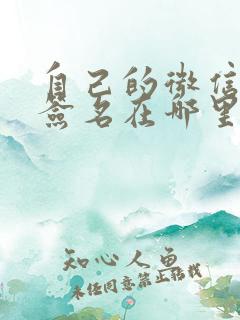 自己的微信
签名在哪里
知心人鱼
未经同意禁止转载